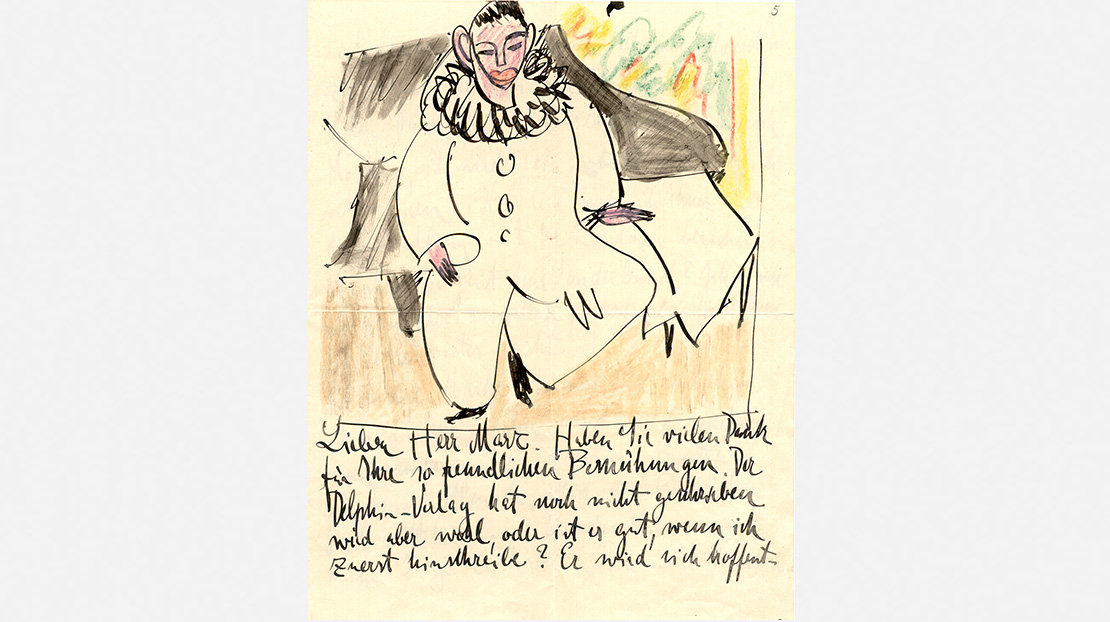 5
Lieber Herr Marc. Haben Sie vielen Dank
für Ihre so freundlichen Bemühungen. Der
Delphin-Verlag hat noch nicht geschrieben
wird aber wol, oder ist es gut, wenn ich
zuerst hinschreibe? Er wird sich hoffent-